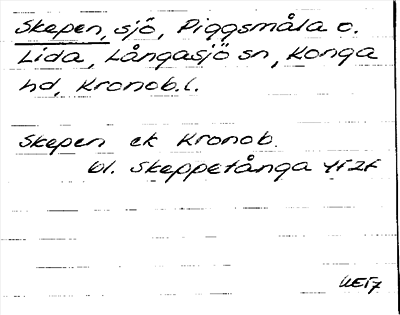 Skepen, sjö, Piggsmåla o.
Lida, Långasjö sn, Konga
hd, Kronob.l.
Skepen ek Kronob.
bl. Skeppetånga 4f2f